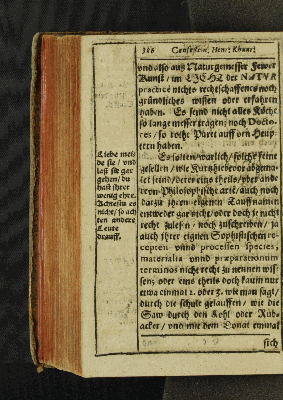 186 Confession, Henr: Khunr:
vnd also auß Naturgemesser Fewer
Kunst / im LICHT der NATVR
practicè nichts rechtschaffenes noch
gründliches wissen oder erfahren
haben. Es seind nicht alles Köche
so lange messer tragen; noch Docto-
res / so rothe Püret auff den Heup-
tern haben.
Es solten / warlich / solche feine
gesellen / wie
let seind / derer eins theils / vber ande
rern Philosophische arte / auch noch
darzu ihren eigenen Tauffnamen
entweder gar nicht / oder doch je nicht
recht zu lesen / noch zuschreiben / ja
auch ihrer eignen Sophistischen re-
cepten vnnd processen species,
materialia vnnd præparationum
terminos nicht recht zu nennen wis-
sen; oder eins theils doch kaum nur
etwa einmal 2. oder 3. wie man sagt /
durch die schule gelauffen / wie die
Saw durch den Kohl oder Rüb-
acker / vnd mit dem Donat einmal
sich
Liebe mei-
de sie / vnd
laß sie gar
gehen / du
hast ihrer
wenig ehre.
Achtestu es
nicht / so ach
ten andere
Leute
drauff.